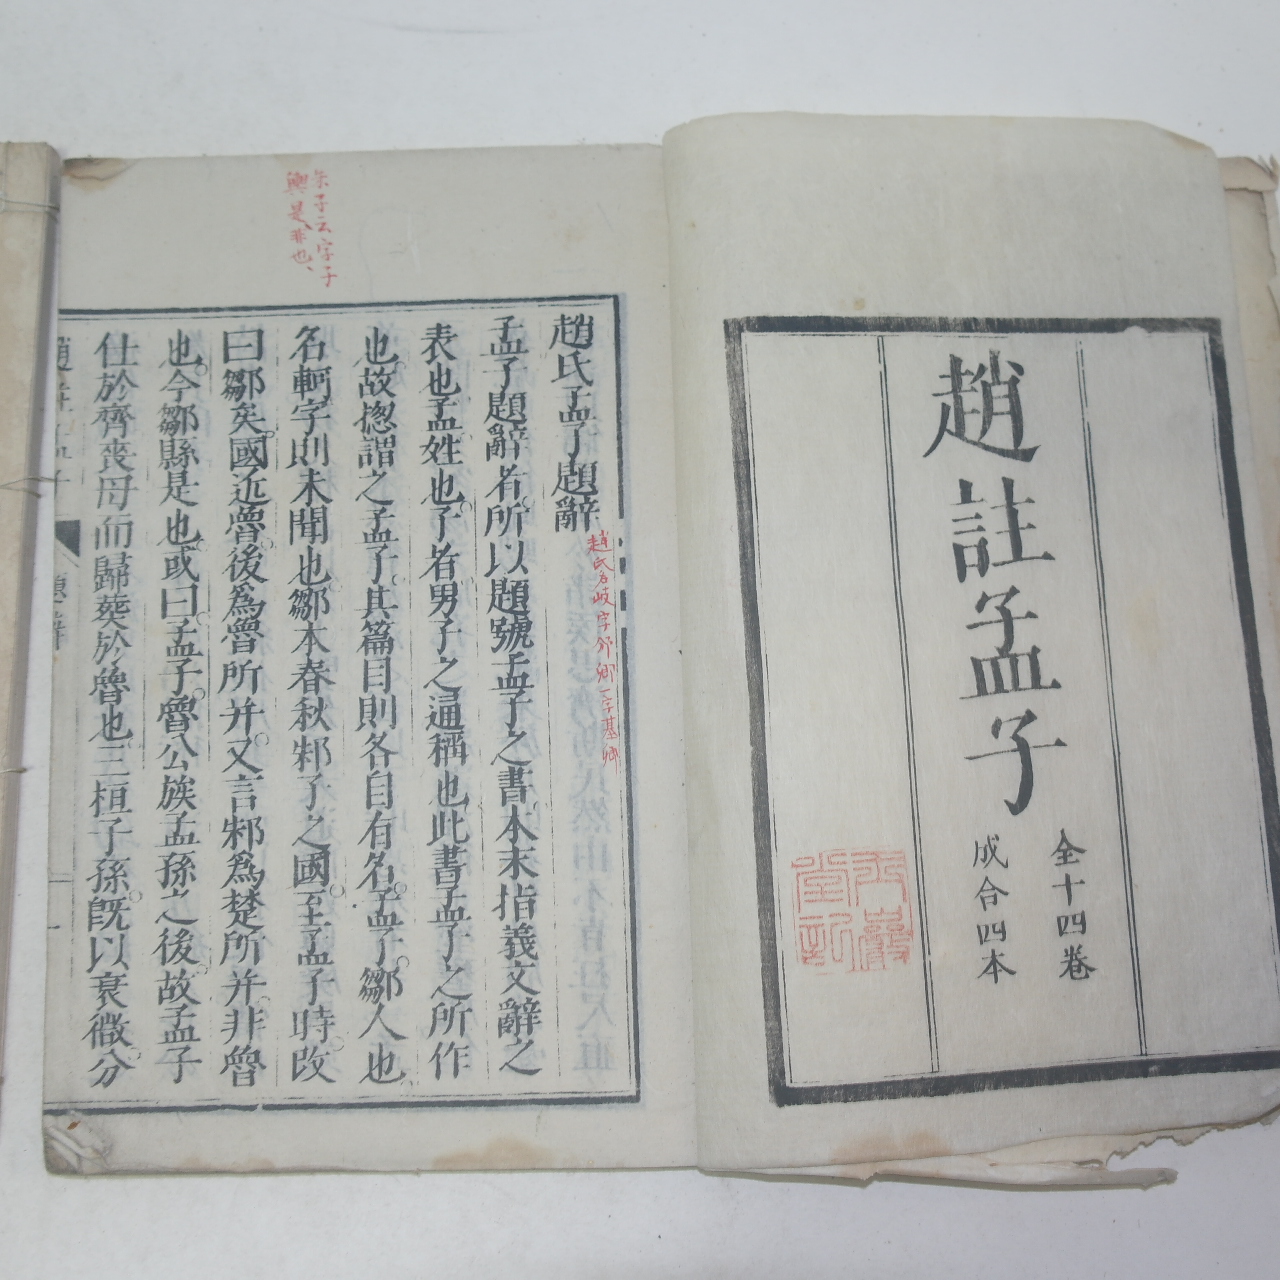 趙註孟子
全十四卷
成合四本
趙氏孟子題辭
趙氏名岐字邠卿一字臺卿
孟子題辭者所以題號孟子之書本末指義文辭之
表也孟姓也子者男子之通稱也此書孟子之所作
也故揔謂之孟子其篇目則各自有名孟子鄒人也
名軻字則未聞也鄒本春秋邾子之國至孟子時改
曰鄒矣國近魯後爲魯所并又言邾爲楚所并非魯
也今鄒縣是也或曰孟子魯公族孟孫之後故孟子
仕於齊喪母而歸葬於魯也三桓子孫既以衰微分
朱子云字子
輿是非也
趙註孟子
題辭
一